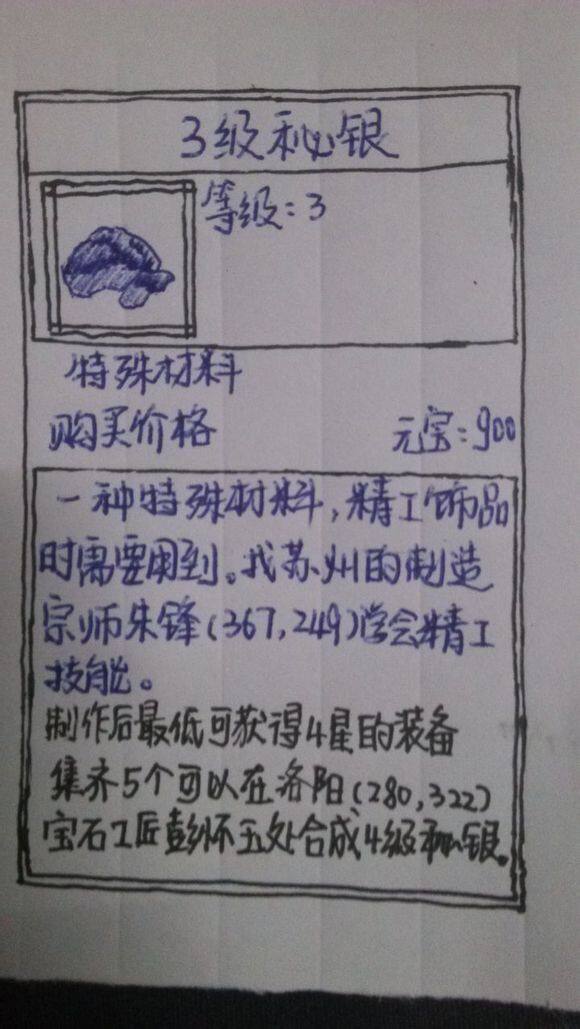 3级秘银
等级:3
特殊材料
购买价格 元宝:900
一种特殊材料,精工饰品
时需要用到。找苏州的制造
宗师朱锋(367,249)学会精工
技能。
制作后最低可获得4星的装备
集齐5个可以在洛阳(280,322)
宝石工匠彭怀玉处合成4级秘银。